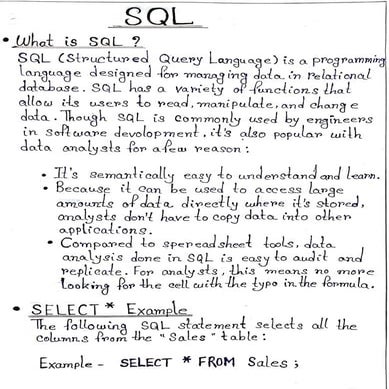 SQL
• What is SQL ?
SQL (Structured Query Language) is a programming
language designed for managing data in relational
database. SQL has a variety of functions that
allow its users to read, manipulate, and change
data. Though SQL is commonly used by engineers
in software devolopment, it's also popular with
data analysts for a few reason :
• It's semantically easy to understand and learn.
• Because it can be used to access large
amounts of data directly where it's stored,
analysts don't have to copy data into other
applications.
• Compared to spereadsheet tools, data
analysis done in SQL is easy to audit and
replicate. For analysts, this means no more
Looking for the cell with the typo in the formula.
• SELECT * Example
The following SQL statement selects all the
columns from the "Sales" table :
Example - SELECT * FROM Sales ;